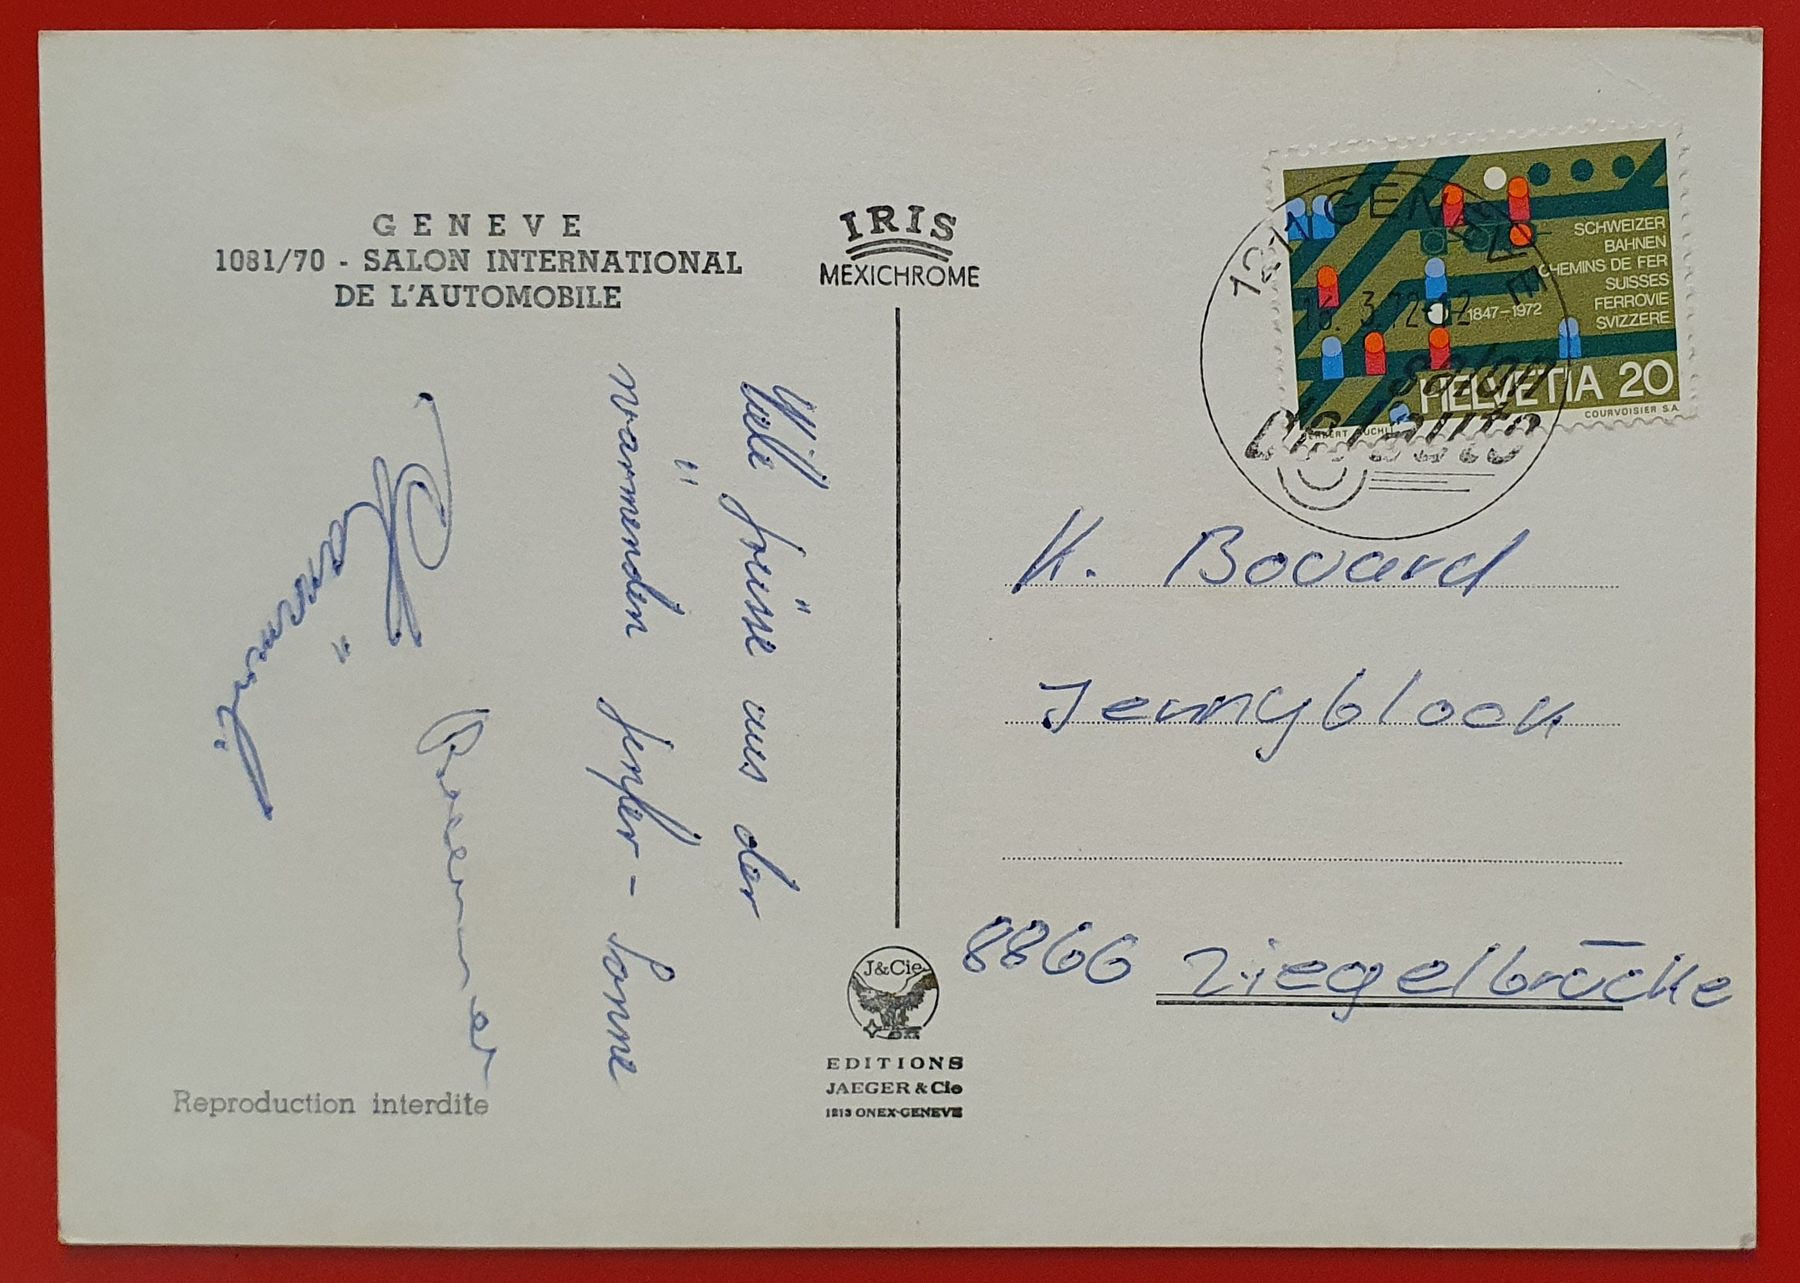 GENEVE
1081/70 - SALON INTERNATIONAL
DE L'AUTOMOBILE
IRIS
MEXICHROME
Viele Grüsse aus der
wärmenden Genfer-Sonne
Reproduction interdite
J&Cie
EDITIONS
JAEGER & Cie
1213 ONEX-GENEVE
SCHWEIZER
BAHNEN
CHEMINS DE FER
SUISSES
FERROVIE
SVIZZERE
1847-1972
HELVETIA 20
COURVOISIER S.A.
1211 GENEVE
16. 3.72-12
salon
de l'auto
K. Bovard
Jennyblock
8866 Ziegelbrücke